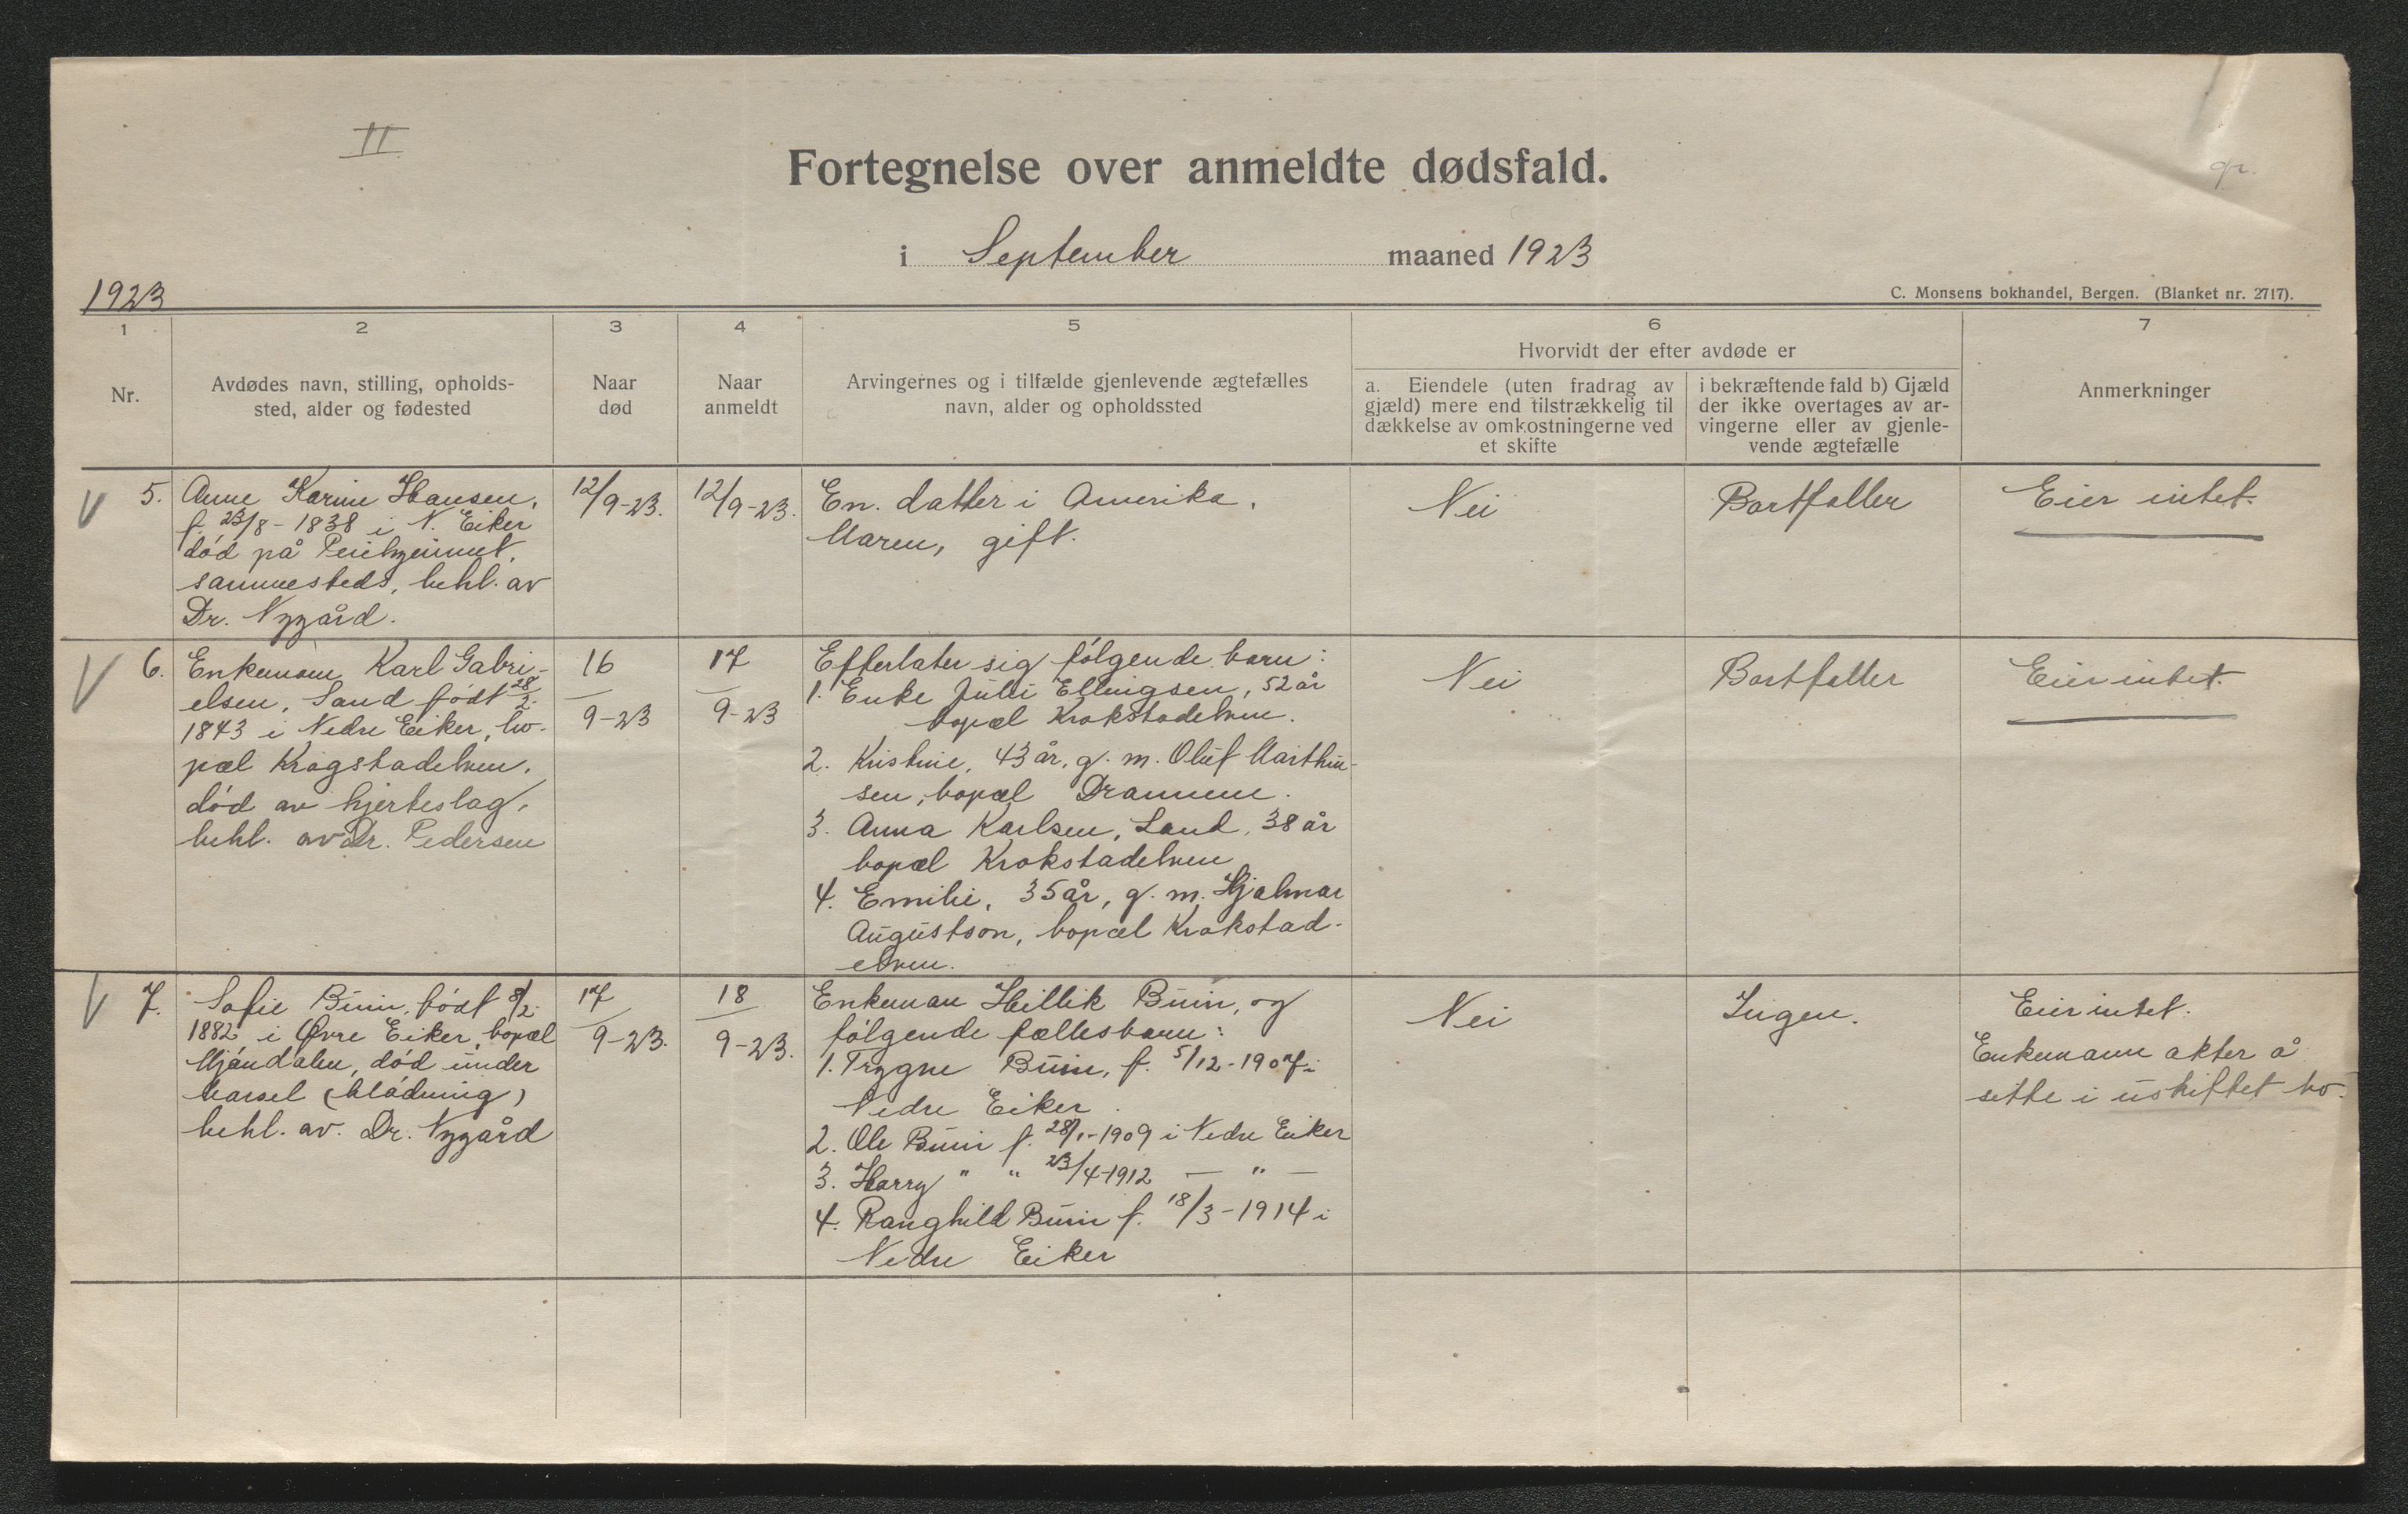 II
Fortegnelse over anmeldte dødsfald.
i September maaned 1923
1923
C. Monsens bokhandel, Bergen. (Blanket nr. 2717).
1
2
3
4
5
6
7
Nr.
Avdødes navn, stilling, opholds-
sted, alder og fødested
Naar
død
Naar
anmeldt
Arvingernes og i tilfælde gjenlevende ægtefælles
navn, alder og opholdssted
Hvorvidt der efter avdøde er
a. Eiendele (uten fradrag av
gjæld) mere end tilstrækkelig til
dækkelse av omkostningerne ved
et skifte
i bekræftende fald b) Gjæld
der ikke overtages av ar-
vingerne eller av gjenle-
vende ægtefælle
Anmerkninger
V 5.
Anne Karine Hansen,
f. 23/8-1838 i N. Eiker
død på Pleiehjemmet,
sammesteds, behl. av
Dr. Nygård.
12/9-23.
12/9-23.
En datter i Amerika.
Maren, gift.
Nei
Bortfaller
Eier intet.
V 6.
Enkemann Karl Gabri-
elsen, Sand født 28/2.
1843 i Nedre Eiker, bo-
pæl Krogstadelven.
død av hjerteslag,
behl. av Dr. Pedersen
16
9-23
17
9-23
Efterlater sig følgende barn:
1. Enke Julie Ellingsen, 52 år
bopæl Krokstadelven.
2. Kristine, 43 år, g. m. Oluf Marthin-
sen, bopæl Drammen.
3. Anna Karlsen, Sand, 38 år
bopæl Krokstadelven
4. Emilie, 35 år, g. m. Hjalmar
Augustson, bopæl Krokstad-
elven.
Nei
Bortfaller
Eier intet.
V 7.
Sofie Buin, født 8/2.
1882 i Øvre Eiker, bopæl
Mjøndalen, død under
barsel (blødning)
behl. av. Dr. Nygård
17
9-23.
18
9-23.
Enkeman Hellik Buin, og
følgende fællesbarn:
1. Trygve Buin, f. 5/12-1907 i
Nedre Eiker.
2. Ole Buin f. 28/1-1909 i Nedre Eiker
3. Harry " " 23/4-1912 — " —
4. Ranghild Buin f. 18/3-1914 i
Nedre Eiker
Nei
Ingen.
Eier intet.
Enkemann akter å
sitte i uskiftet bo.